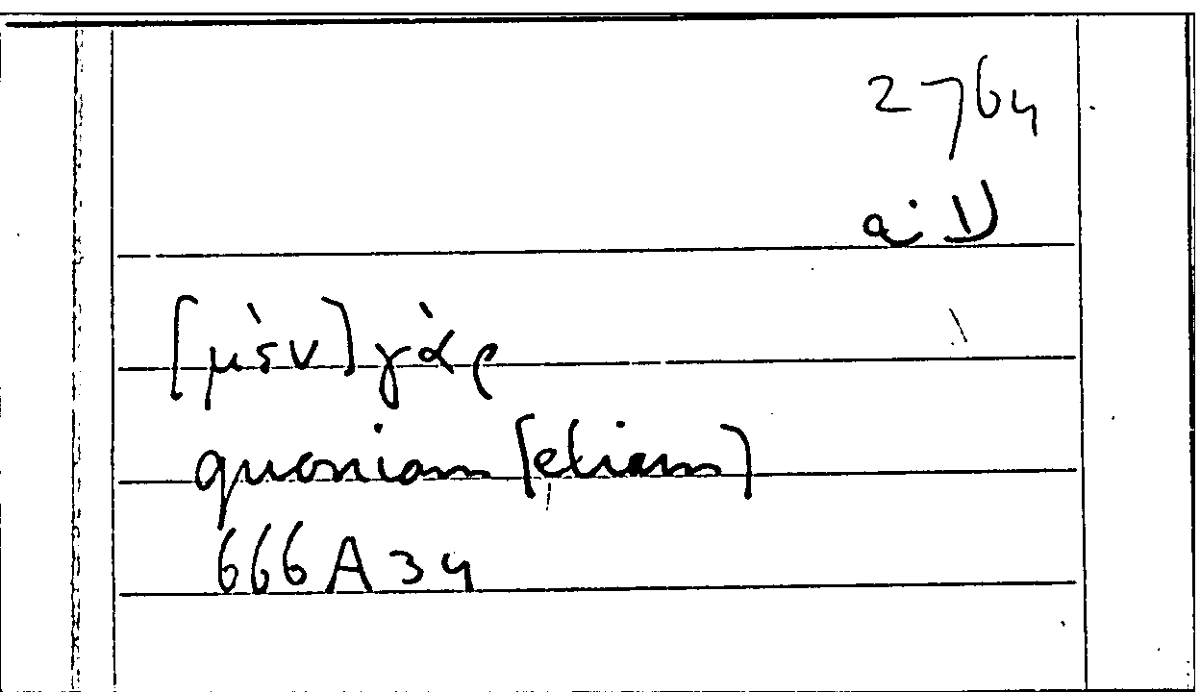 2764
a·D
[μὲν] γὰρ
quoniam [etiam]
666A34